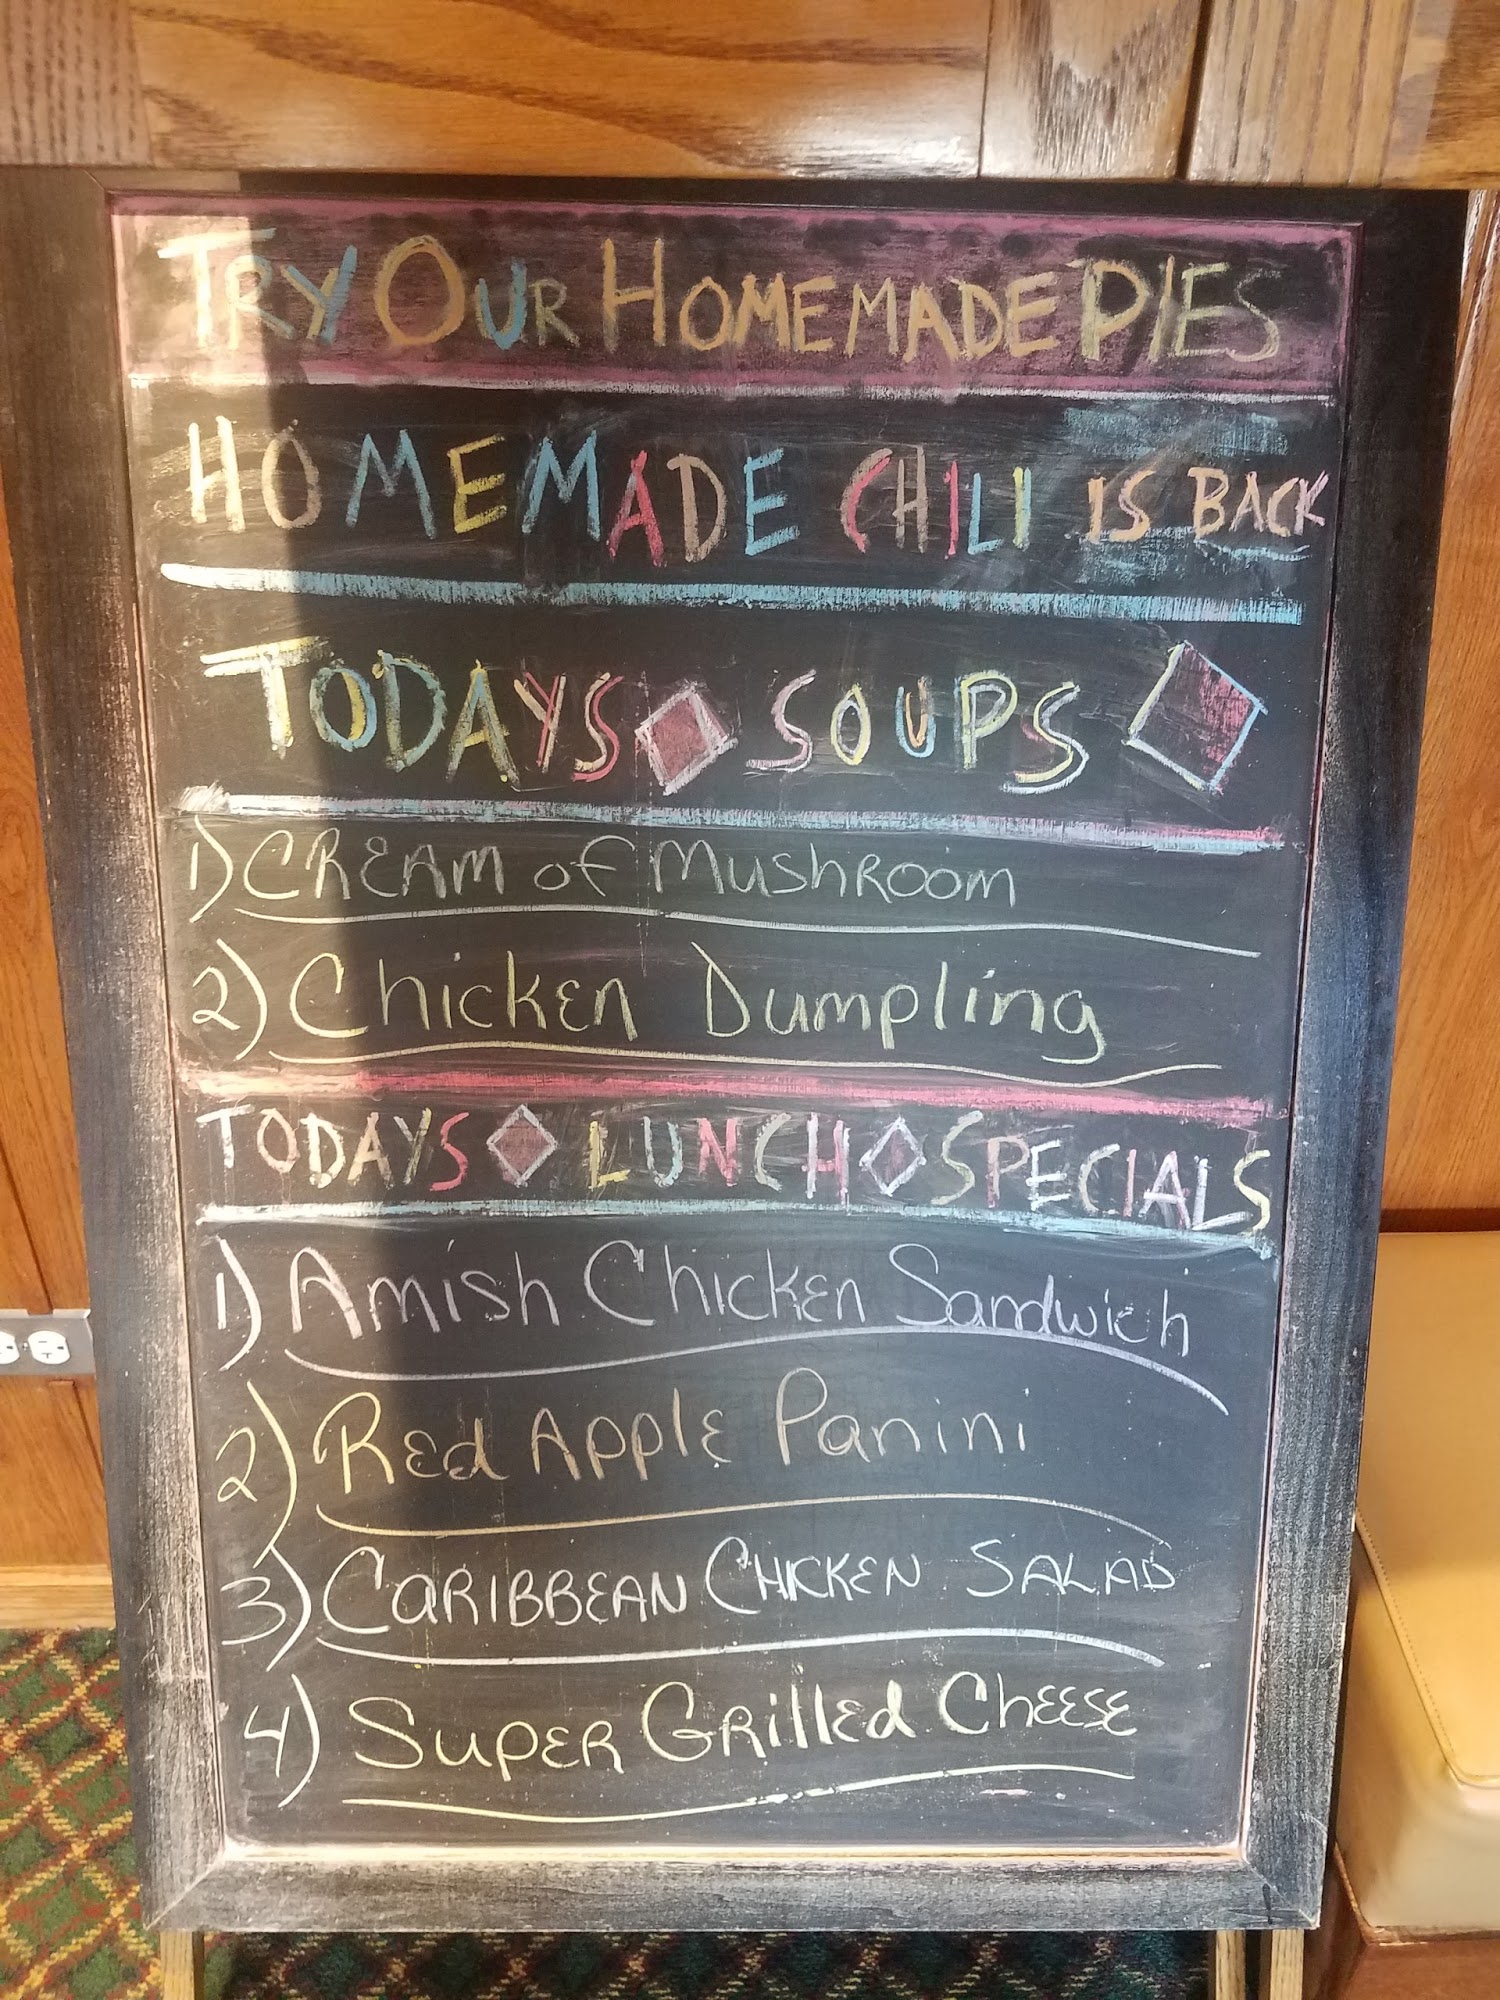 TRY OUR HOMEMADE PIES
HOMEMADE CHILI IS BACK
TODAYS SOUPS
1) CREAM OF MUSHROOM
2) Chicken Dumpling
TODAYS LUNCH SPECIALS
1) Amish Chicken Sandwich
2) Red Apple Panini
3) CARIBBEAN CHICKEN SALAD
4) Super Grilled Cheese